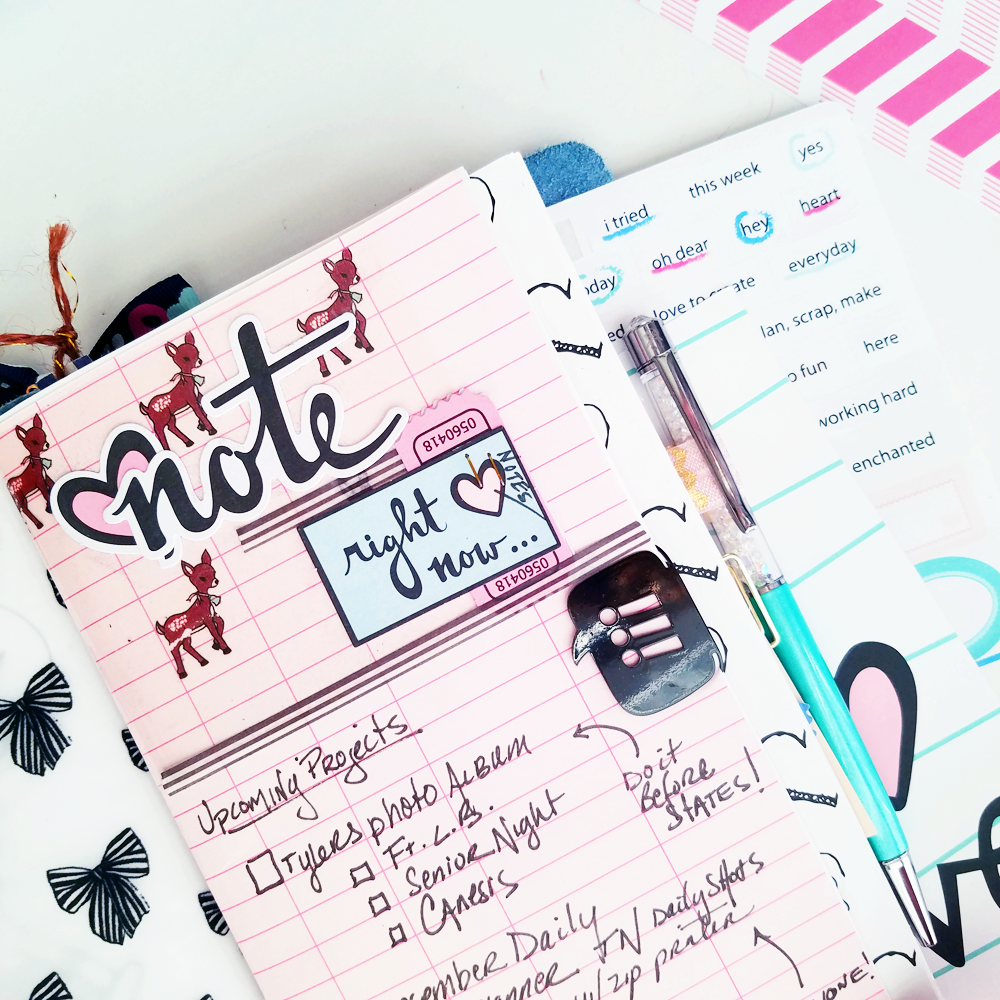 note
0560418
right
now...
NOTES
0560418
Upcoming Projects
Tylers photo ALBUM
Ft. L.B.
Senior Night
Canesis
Do it
Before
STATES!
Daily
TN Daily Shots
w/ zip printer
this week
yes
i tried
hey
heart
oh dear
everyday
love to create
lan, scrap, make
here
o fun
working hard
enchanted